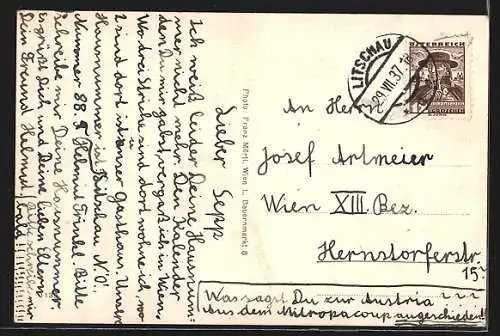 Lieber Sepp
Ich weiß leider Deine Hausnum-
mer nicht mehr. Den Kalender
den Du mir gabst, vergaß ich in Wien.
Wo drei Striche sind, dort wohne ich, wo
2 sind dort ist unser Gasthaus. Unsere
Hausnummer ist Litschau N.Ö.
Nummer 88. Helmut Bitte
Schreibe mir Deine Hausnummer.
Es grüßt Dich und Deine lieben
Dein Freund Helmut. Bitte schreib mir
bald!!!!!!
Photo: Franz Mörtl, Wien I., Bauernmarkt 8
LITSCHAU
29.VII.37
ÖSTERREICH
An Herrn
Josef Artmeier
Wien XIII. Bez.
Hernstorferstr.
15
Was sagst Du zur Austria ???
Aus dem Mitropacup ausgeschieden!